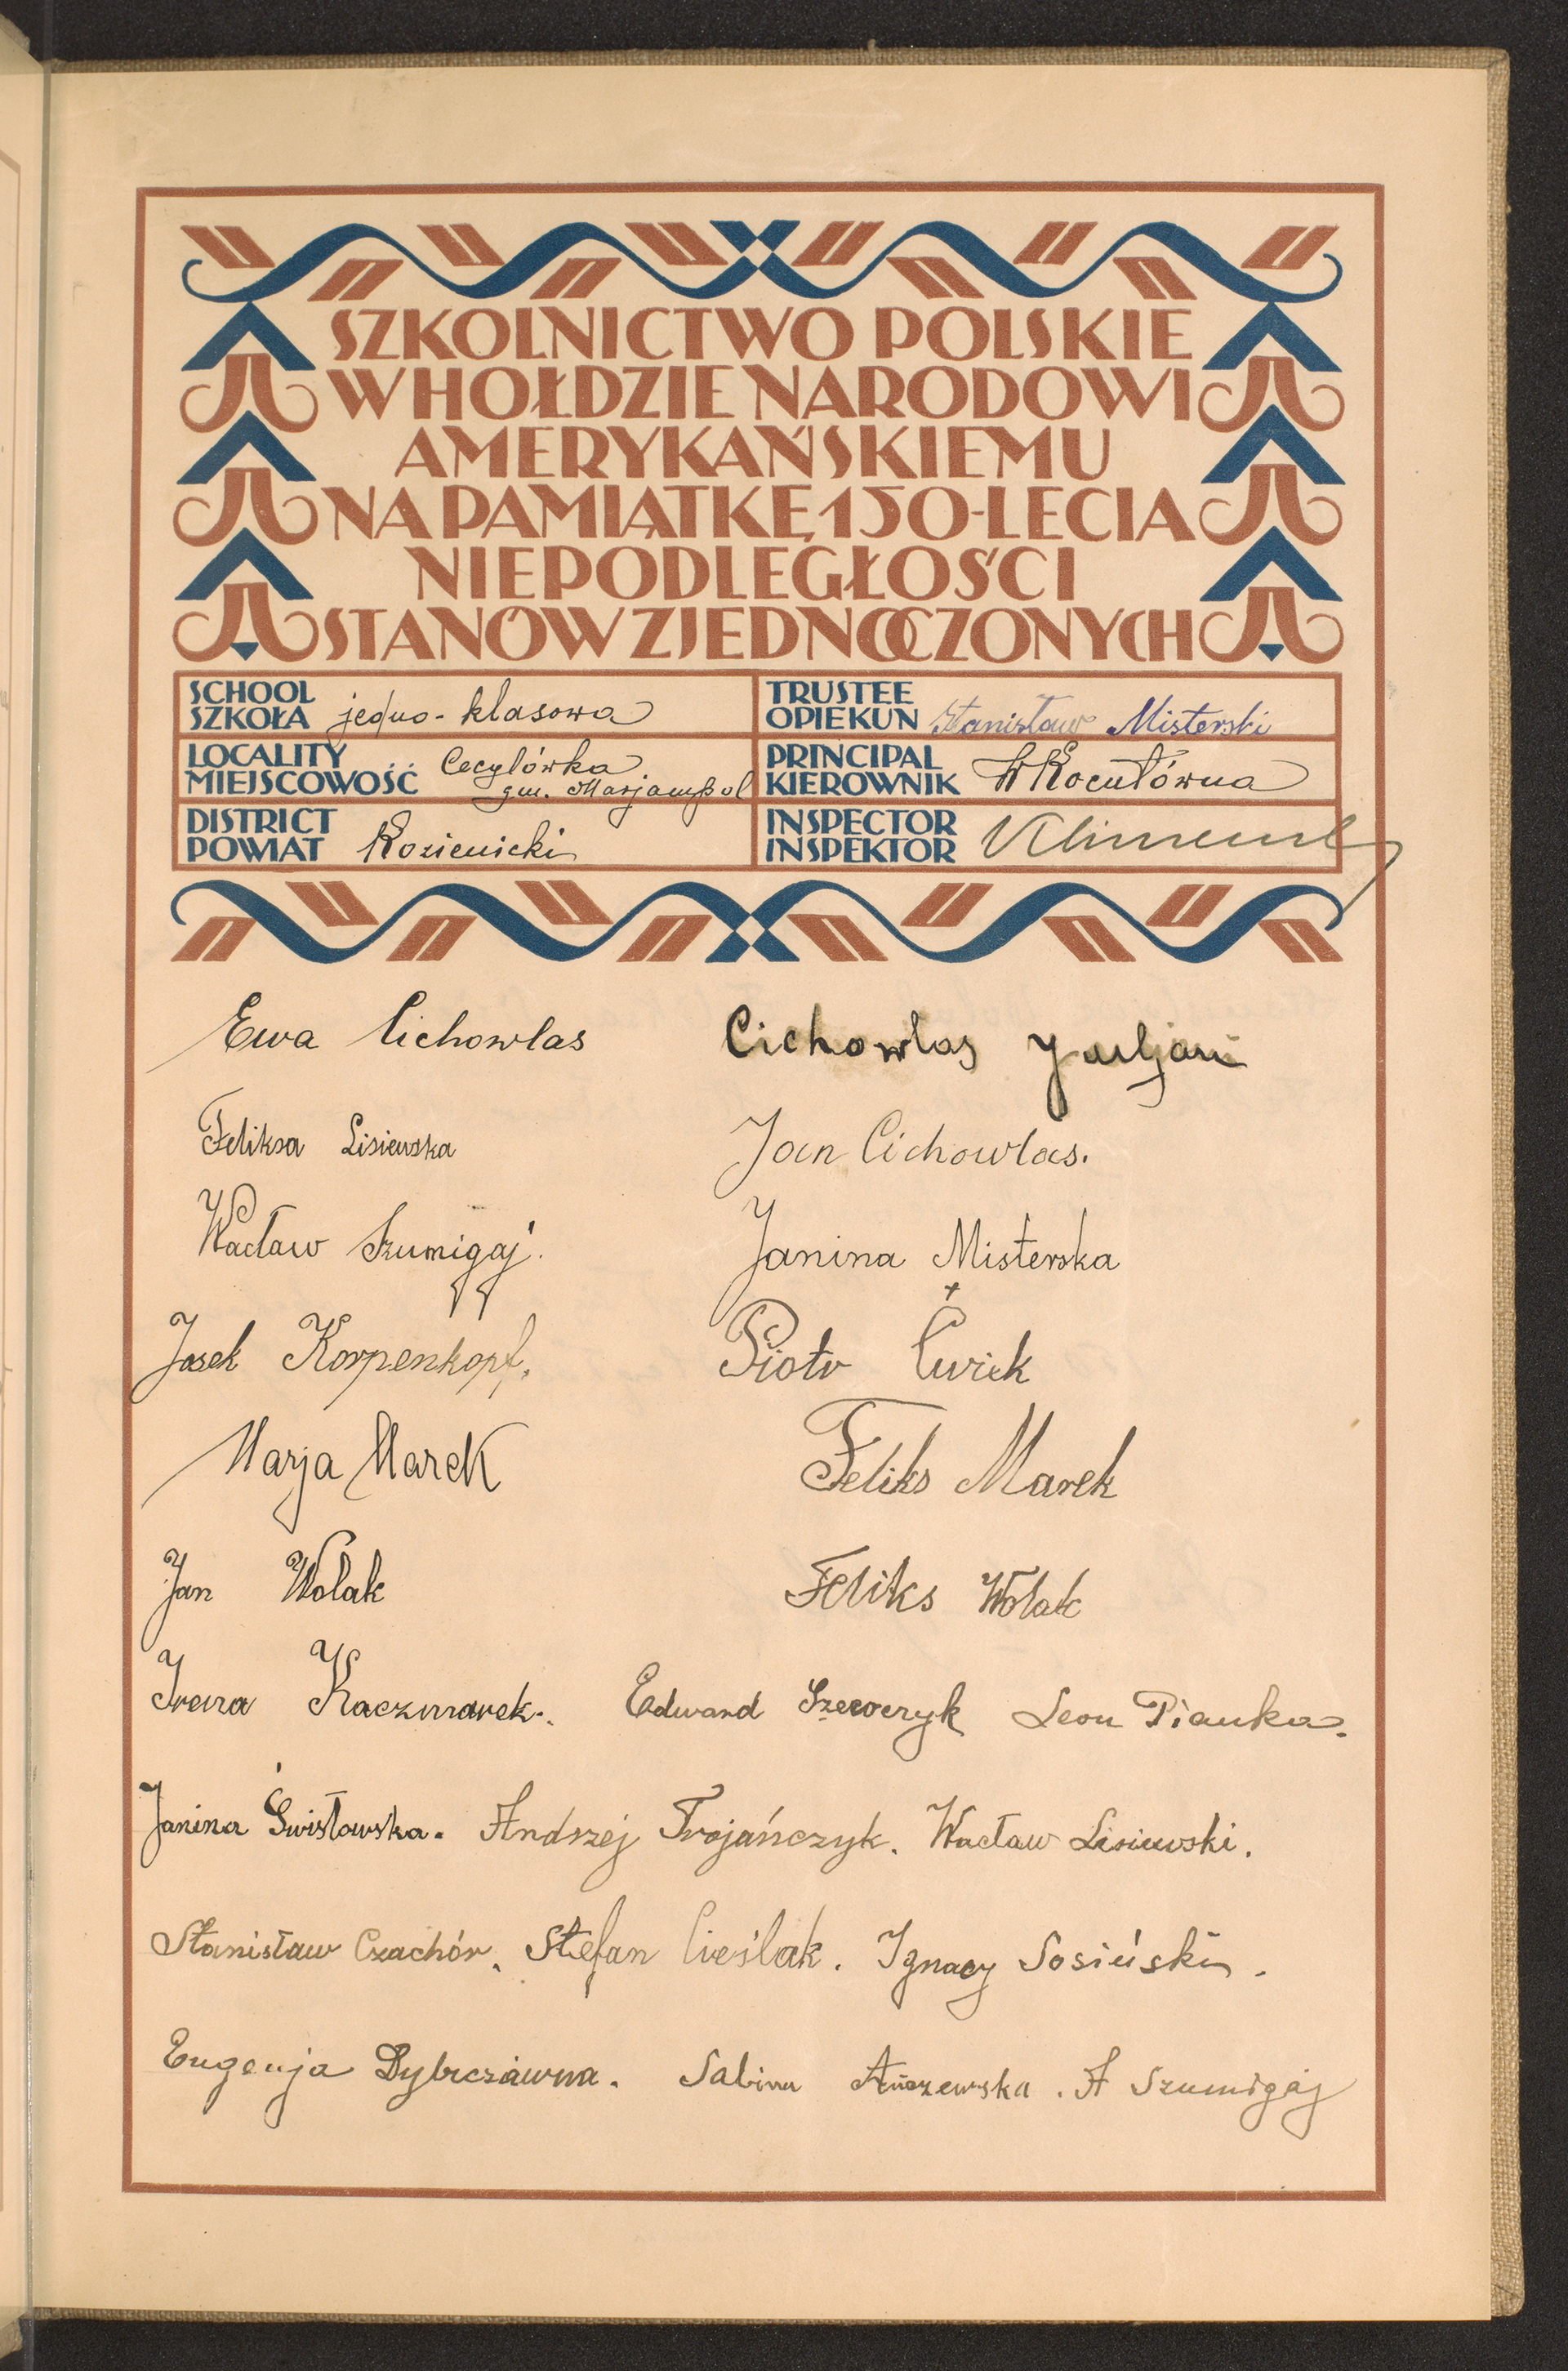 SZKOLNICTWO POLSKIE
W HOŁDZIE NARODOWI
AMERYKAŃSKIEMU
NA PAMIĄTKĘ 150-LECIA
NIEPODLEGŁOŚCI
STANÓW ZJEDNOCZONYCH
SCHOOL
SZKOŁA jedno-klasowa
TRUSTEE
OPIEKUN Stanisław Misterski
LOCALITY
MIEJSCOWOŚĆ Cecylówka
gm. Marjampol
PRINCIPAL
KIEROWNIK
DISTRICT
POWIAT Kozienicki
INSPECTOR
INSPEKTOR
Ewa Cichowlas Cichowlas Juljan
Feliksa Lisiewska Jan Cichowlas.
Wacław Szumigaj. Janina Misterska
Josek Korpenkopf. Piotr Ćwiek
Marja Marek Feliks Marek
Jan Wolak Feliks Wolak
Irena Kaczmarek. Edward Szewczyk Leon Pianka.
Janina Świstowska. Andrzej Trojańczyk. Wacław Lisiewski.
Stanisław Czachór. Stefan Cieślak. Ignacy Sosiński.
Eugenja Sabina . A Szumigaj